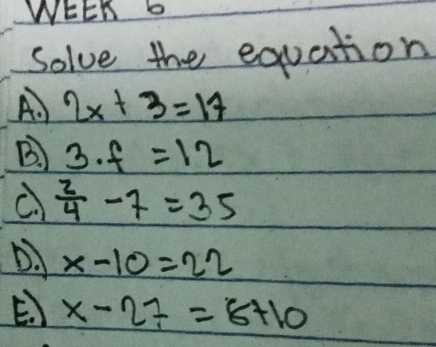 WEEK 6
Solve the equation
A.) 2x + 3 = 17
B.) 3.f = 12
C.) z/4 - 7 = 35
D.) x - 10 = 22
E.) x - 27 = 5+10